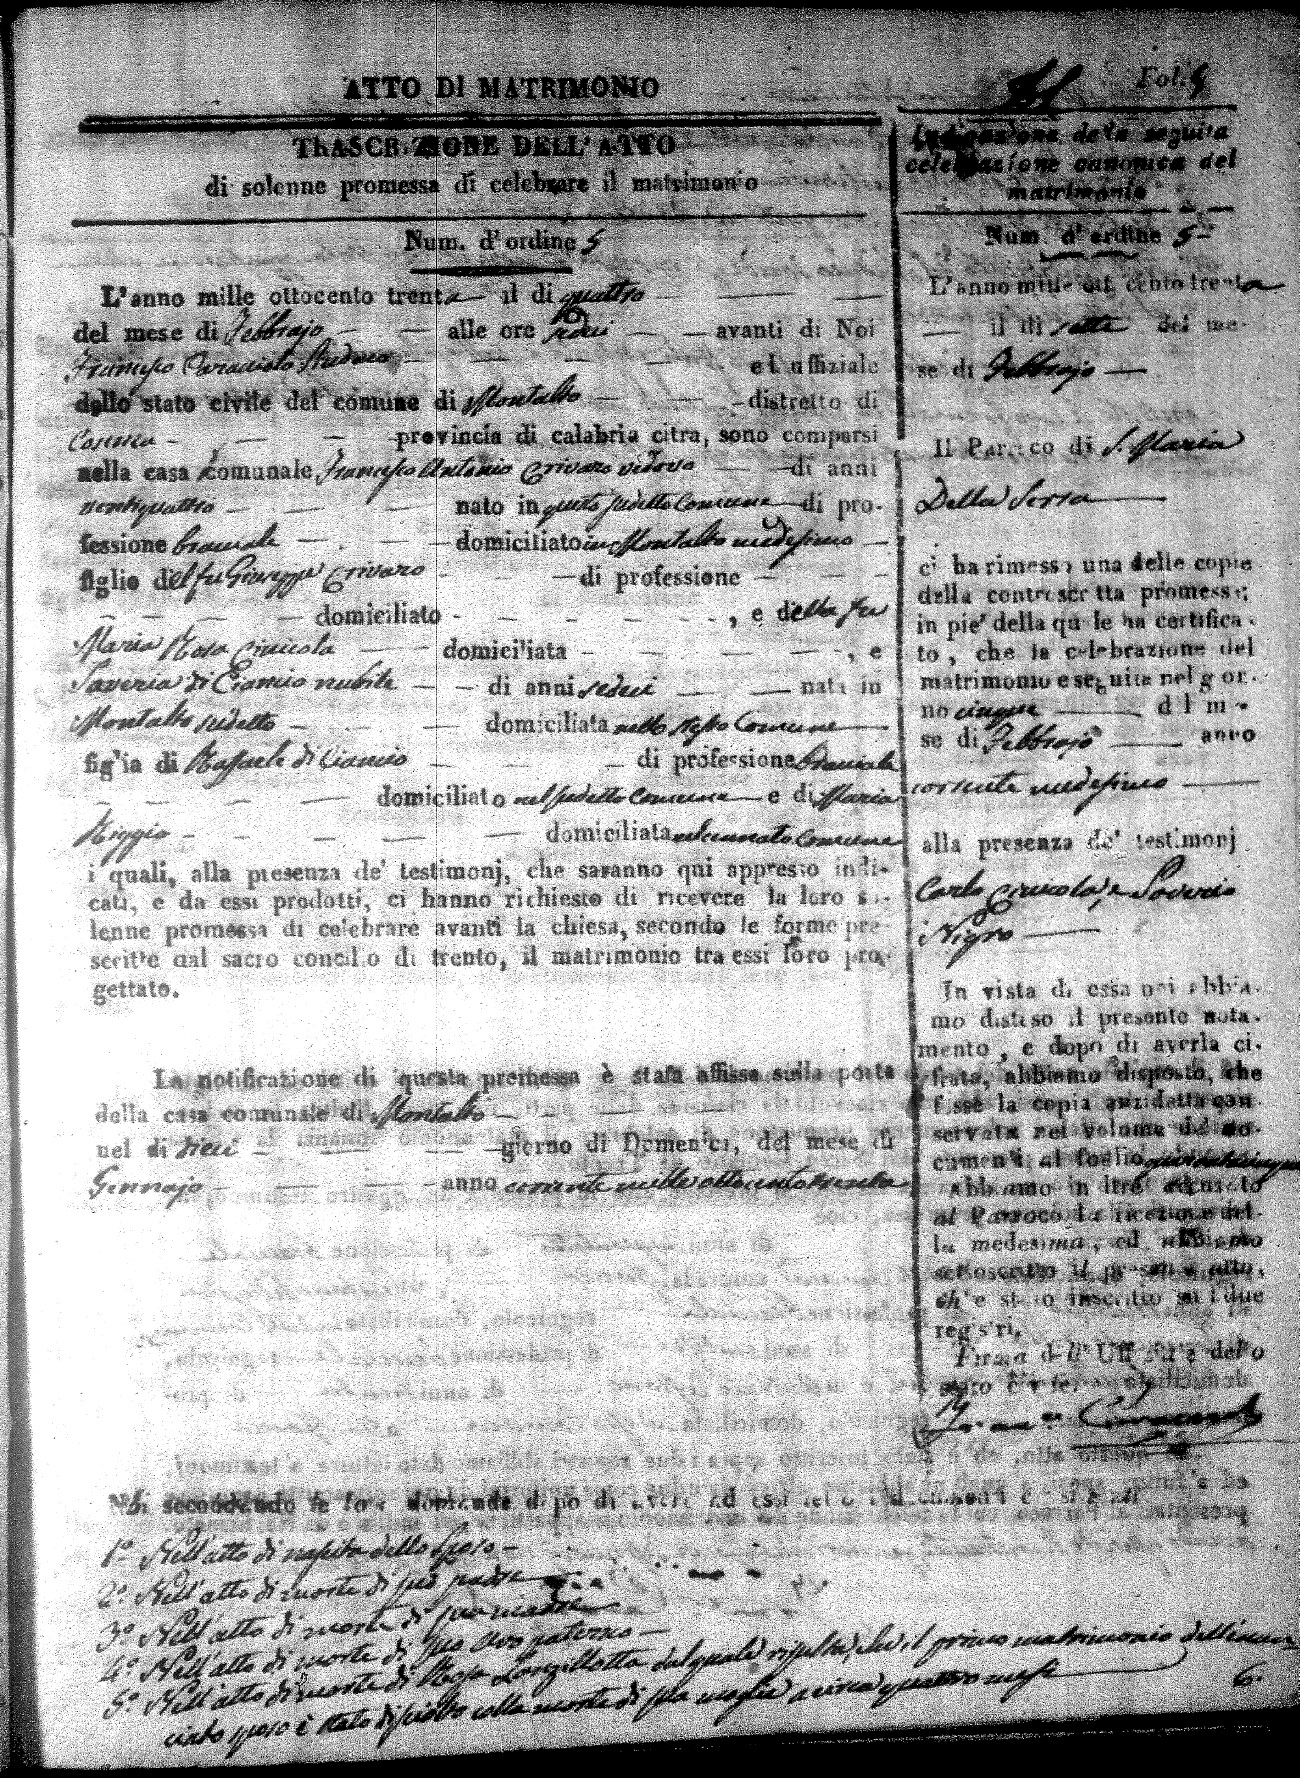 ATTO DI MATRIMONIO
Fol. 5
TRASCRIZIONE DELL' ATTO
di solenne promessa di celebrare il matrimonio
Num. d'ordine 5
L'anno mille ottocento trenta il di quattro
del mese di Febbrajo alle ore avanti di Noi
Francesco ed uffiziale
dello stato civile del comune di Montalto distretto di
Cosenza provincia di calabria citra, sono comparsi
nella casa comunale Francesco Antonio Crivaro vedovo di anni
ventiquattro nato in questo sudetto Comune di pro-
fessione bracciale domiciliato in Montalto medesimo
figlio del fu Giuseppe Crivaro di professione
domiciliato , e della fu
Maria Rosa domiciliata , e
Saveria di Ciancio nubile di anni sedici nata in
Montalto sudetto domiciliata nello stesso Comune
figlia di Raffaele di Ciancio di professione bracciale
domiciliato nel sudetto Comune e di Maria
Reggio domiciliata Comune
i quali, alla presenza de' testimonj, che saranno qui appresso indi-
cati, e da essi prodotti, ci hanno richiesto di ricevere la loro so-
lenne promessa di celebrare avanti la chiesa, secondo le forme pre-
scritte dal sacro concilio di trento, il matrimonio tra essi loro pro-
gettato.
La notificazione di questa promessa è stata affissa sulla porta
della casa comunale di Montalto
nel di dieci giorno di Domenica, del mese di
Gennajo anno corrente mille ottocento trenta
Noi secondando le loro domande dopo di avere ad essi letto i documenti
1.º Nell'atto di nascita dello Sposo
2.º Nell'atto di morte di suo padre
3.º Nell'atto di morte di sua madre
4.º Nell'atto di morte di suo Avo paterno
5.º Nell'atto di morte di Rosa Longillotta dal quale risulta, che il primo matrimonio dell'enun-
ciato sposo è stato disciolto colla morte di sua moglie a circa quattro mesi
Indicazione della seguita
celebrazione canonica del
matrimonio
Num d'ordine 5
L'anno mille ottocento trenta
il di sette del me-
se di Febbrajo
Il Parroco di S. Maria
Della Serra
ci ha rimesso una delle copie
della controscritta promessa;
in pie' della quale ha certifica-
to, che la celebrazione del
matrimonio e seguita nel gior-
no cinque del me-
se di Febbrajo anno
corrente medesimo
alla presenza de' testimonj
Carlo e Saverio
Nigro
In vista di essa noi abbia-
mo disteso il presente nota-
mento, e dopo di averla ci-
frata, abbiamo disposto, che
fisse la copia anzidetta con
servata nel volume de' do-
cumenti al foglio
Abbiamo in oltre accusato
al Parroco la ricezione del-
la medesima, ed abbiamo
sottoscritto il presente atto,
ch'e stato inscritto su i due
registri.
Firma dell' Uffiziale dello
stato civile.
6.